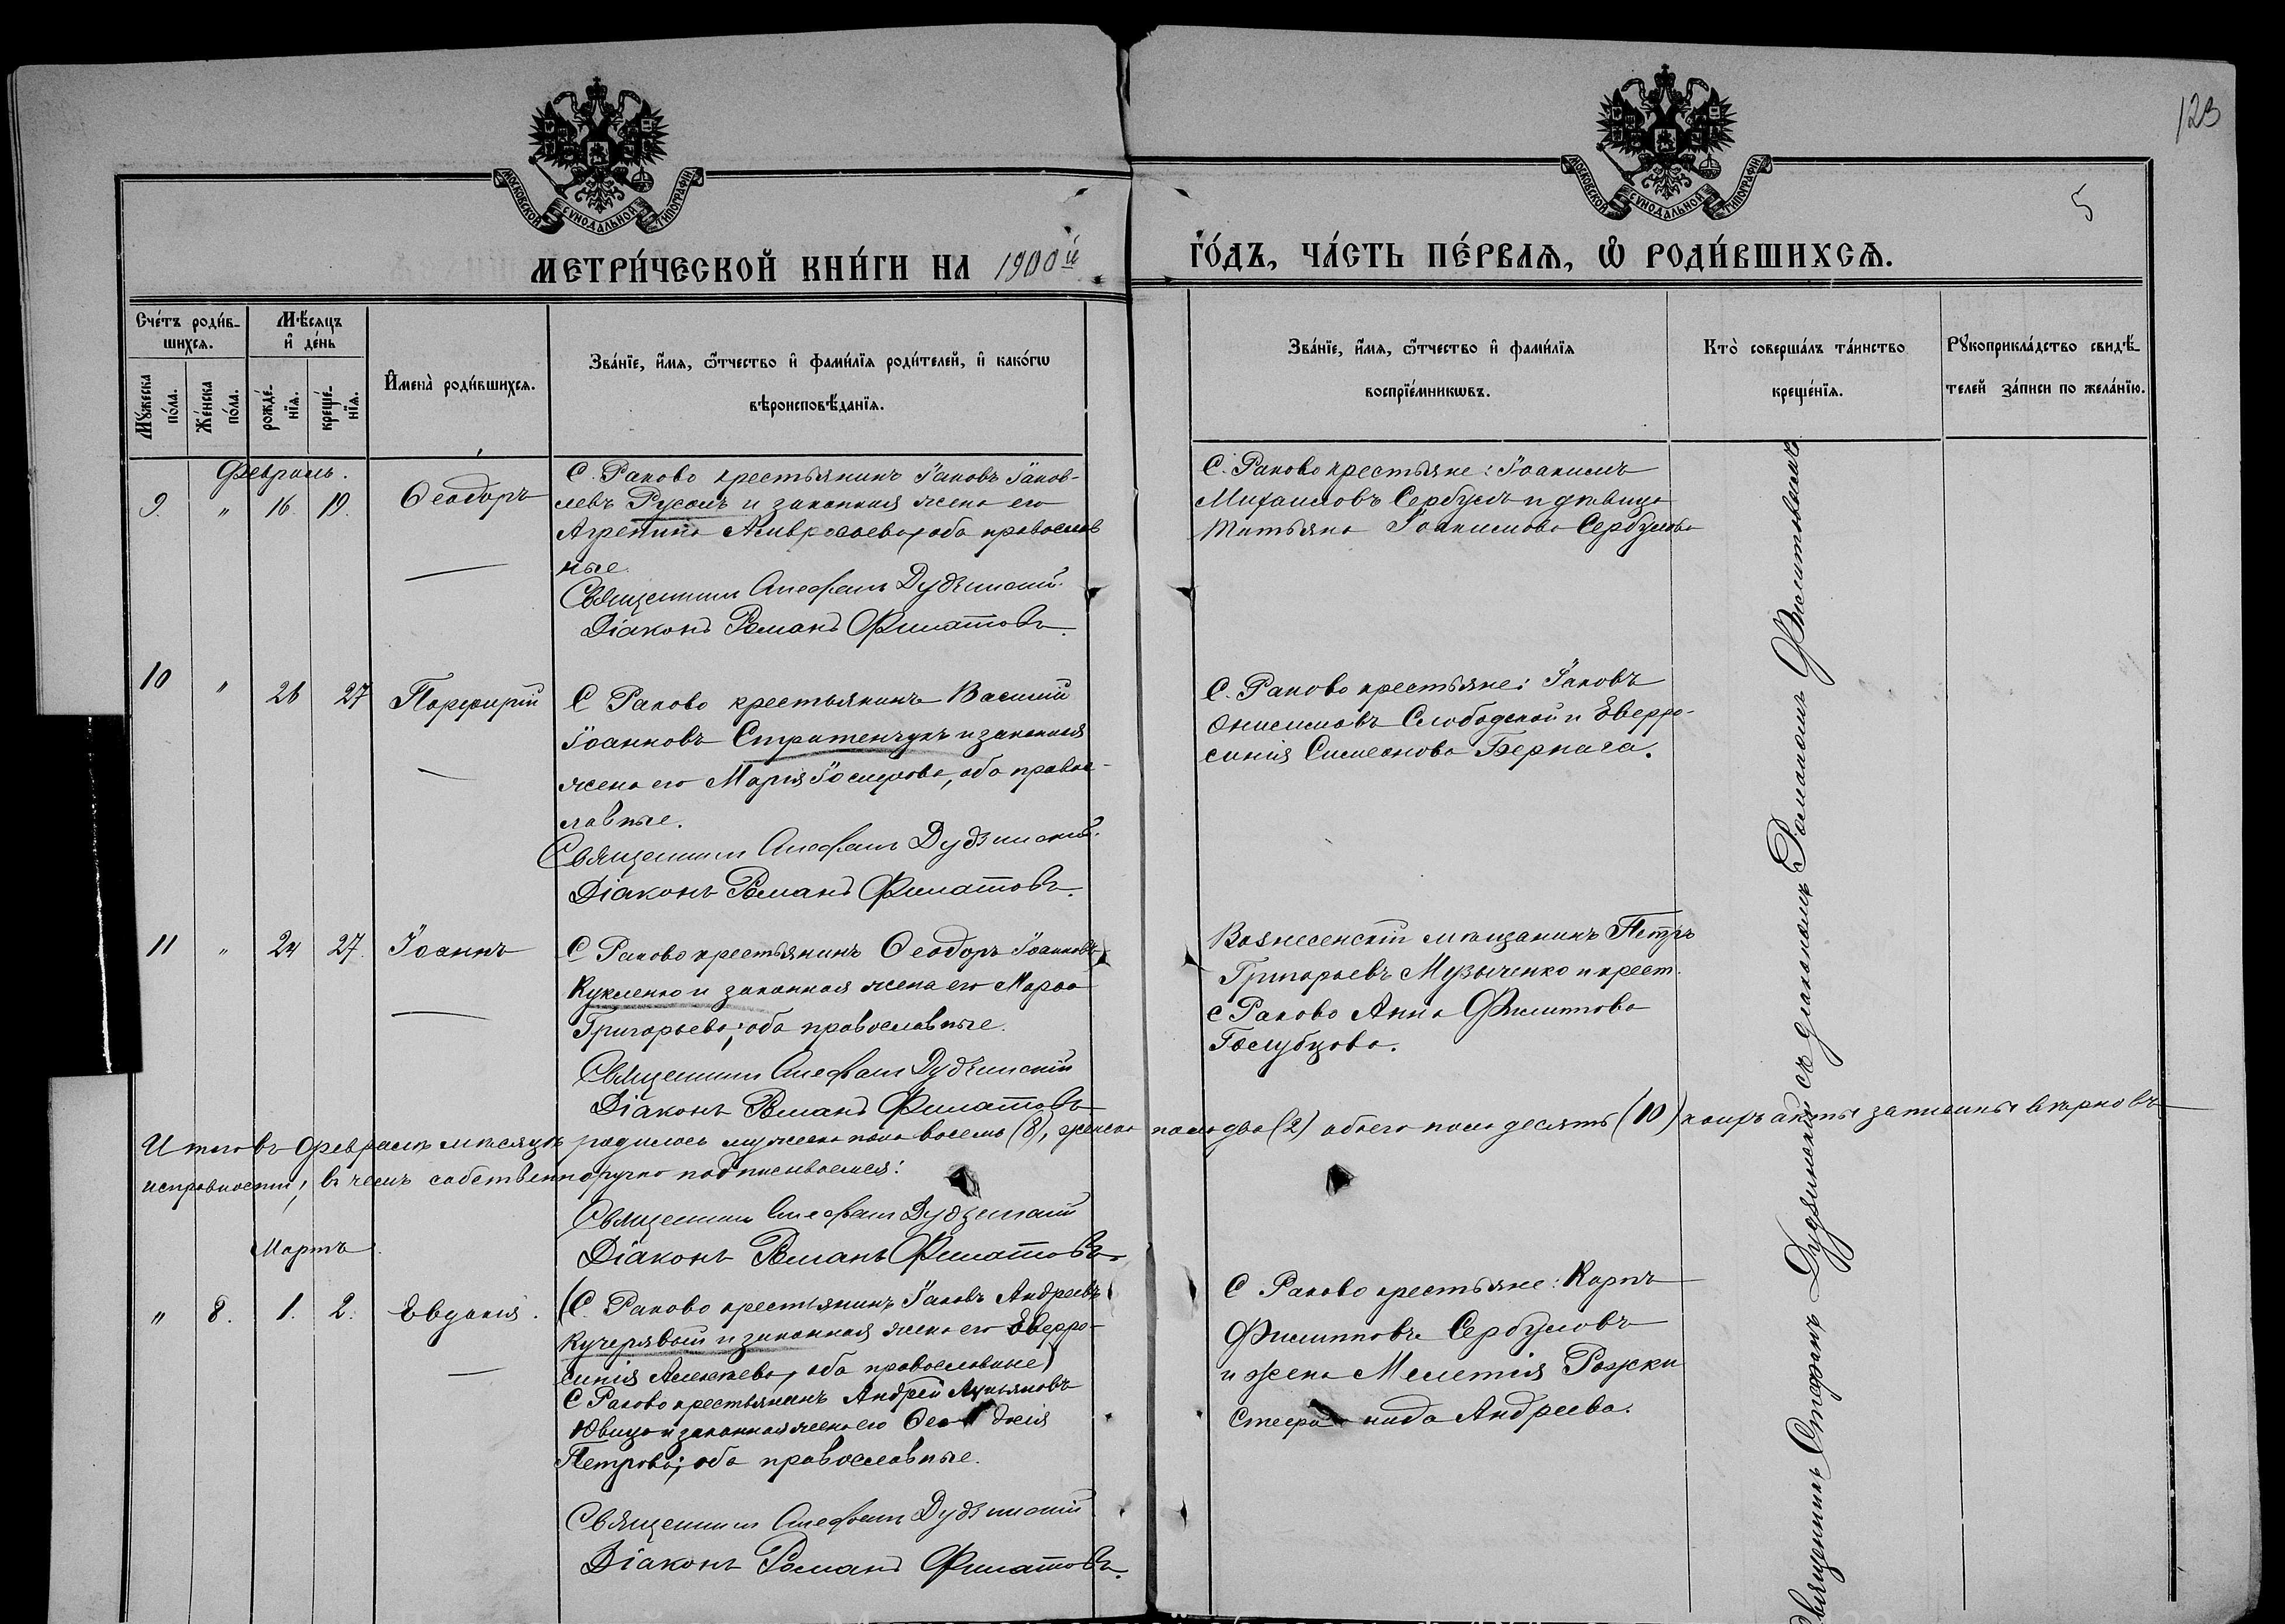 123
5
МОСКОВСКОЙ СѴНОДАЛЬНОЙ ТИПОГРАФІИ
МОСКОВСКОЙ СѴНОДАЛЬНОЙ ТИПОГРАФІИ
МЕТРИ́ЧЕСКОЙ КНИ́ГИ НА 1900й
ГО́ДЪ, ЧА́СТЬ ПЕ́РВАѦ, Ѽ РОДИ́ВШИХСѦ.
Сче́тъ роди́в-
шихсѧ.
Мꙋ́жеска по́ла.
Же́нска по́ла.
Мѣ́сѧцъ
и҆ де́нь
рожде́-нїѧ.
креще́-нїѧ.
И҆мена̀ роди́вшихсѧ.
Зва́нїе, и҆́мѧ, ѻ҆́тчество и҆ фами́лїѧ роди́телей, и҆ како́гѡ
вѣроисповѣ́данїѧ.
Зва́нїе, и҆́мѧ, ѻ҆́тчество и҆ фами́лїѧ
воспрїе́мникѡвъ.
Кто̀ соверша́лъ та́инство
креще́нїѧ.
Рꙋкоприкла́дство свидѣ́-
телей за́писи по жела́нїю.
Февраль.
9. " 16. 19. Ѳеодоръ
С. Раково крестьянинъ Іаковъ Іаков-
левъ Русолъ и законная жена его
Агрепина Амвросіева, оба православ
ные.
Священникъ Стефанъ Дудзинскій.
Діаконъ Романъ Филатовъ.
С. Раково крестьяне: Іоакимъ
Михаиловъ Сербулъ и дѣвица
Татьяна Іоакимова Сербулова
10 " 26 27 Порфирій
С Раково крестьянинъ Василій
Іоанновъ Стратенчукъ и законная
жена его Марія Іосифова, оба право-
славные.
Священникъ Стефанъ Дудзинскій.
Діаконъ Романъ Филатовъ.
С. Раково крестьяне: Іаковъ
Онисимовъ Слободской и Евфро-
синія Симеонова Бернага.
11 " 24 27. Іоаннъ
С Раково крестьянинъ Ѳеодоръ Іоанновъ
Кукленко и законная жена его Марѳа
Григорьева; оба православные.
Священникъ Стефанъ Дудзинскій
Діаконъ Романъ Филатовъ
Вознесенскій мѣщанинъ Петръ
Григорьевъ Музыченко и крест.
с Раково Анна Филиппова
Голубцова.
Итого въ Февралѣ мѣсяцѣ родилось мужеска пола восемь (8), женска пола два (2) обоего пола десять (10) коихъ акты записаны вѣрно въ
исправности, въ чемъ собственноручно подписываемся:
Священникъ Стефанъ Дудзинскій
Діаконъ Романъ Филатовъ
Мартъ.
" 8. 1. 2. Евдокія.
(С Раково крестьянинъ Іаковъ Андреевъ
Кучерявый и законная жена его Евфро-
синія Алексѣева, оба православные)
С Раково крестьянинъ Андрей Лукьяновъ
Ювица и законная жена его Ѳеодосія
Петрова; оба православные.
Священникъ Стефанъ Дудзинскій
Діаконъ Романъ Филатовъ.
С Раково крестьяне: Карпъ
Филипповъ Сербуловъ
и жена Мелетія Рожки
Стефанида Андреева.
Священникъ Стефанъ Дудзинскій съ діакономъ Романомъ Филатовымъ